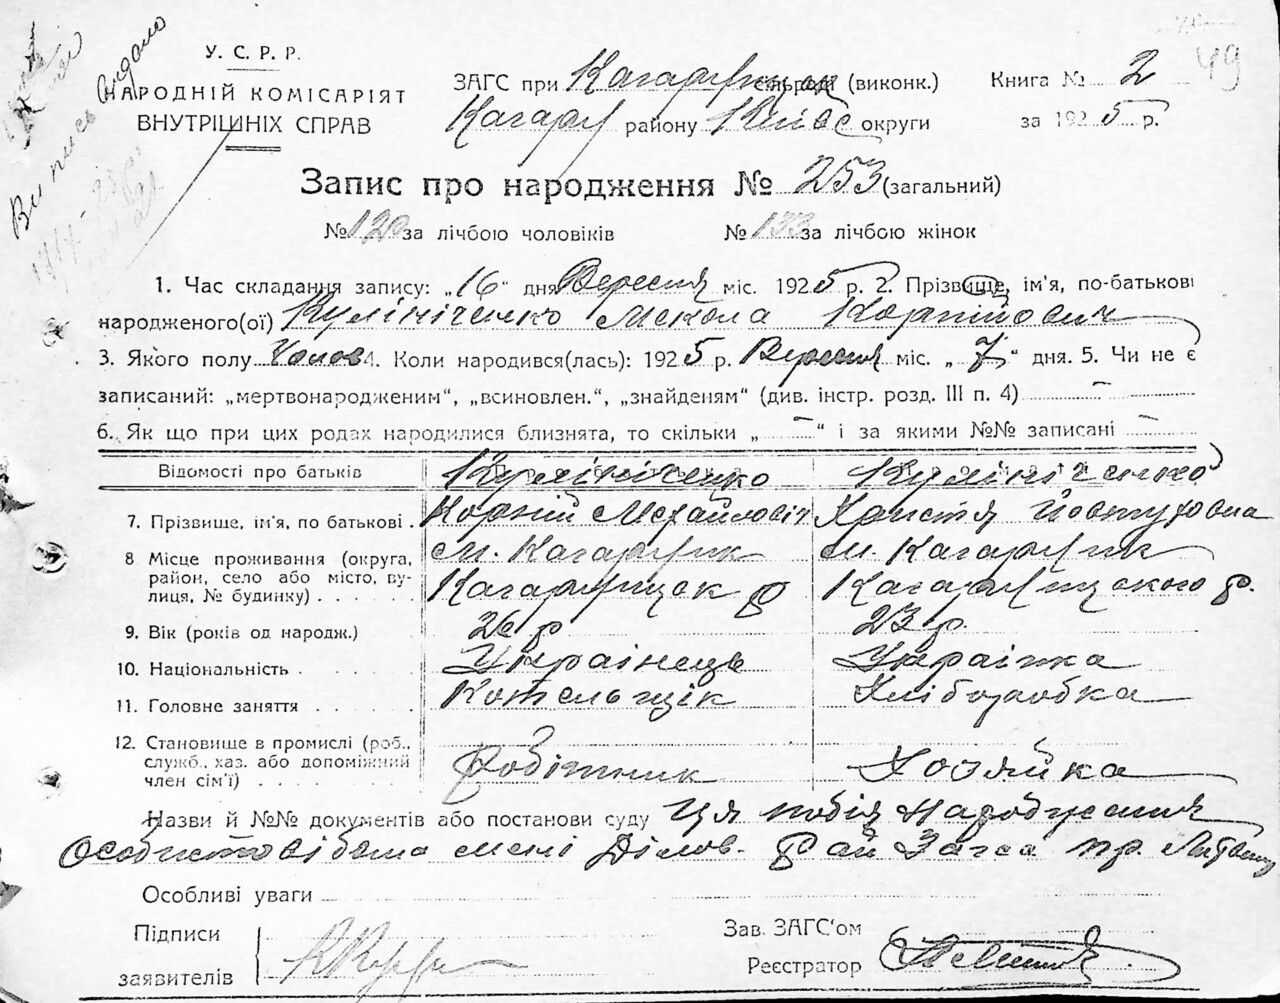 У. С. Р. Р.
НАРОДНІЙ КОМІСАРІЯТ
ВНУТРІШНІХ СПРАВ
Випись видано
ЗАГС при Кагарлицьк сільраді (виконк.)
Кагарл району Київс округи
Книга № 2
за 1925 р.
49
Запис про народження № 253 (загальний)
№ 120 за лічбою чоловіків № 133 за лічбою жінок
1. Час складання запису: „16“ дня Вересня міс. 1925 р. 2. Прізвище, ім'я, по-батькові
народженого(ої) Кулініченко Микола Корнійович
3. Якого полу Чолов 4. Коли народився(лась): 1925 р. Вересня міс. „7“ дня. 5. Чи не є
записаний: „мертвонародженим“, „всиновлен.“, „знайденям“ (див. інстр. розд. III п. 4) —
6. Як що при цих родах народилися близнята, то скільки „—“ і за якими №№ записані —
Відомості про батьків Кулініченко Кулініченко
7. Прізвище, ім'я, по батькові . Корній Михайлович Христя Йовтуховна
8 Місце проживання (округа, м. Кагарлик м. Кагарлик
район, село або місто, ву-
лиця, № будинку) . . . . Кагарлицьк р Кагарлицького р.
9. Вік (років од народж.) 26 р 23 р.
10. Національність . . . . . Українець Українка
11. Головне заняття . . . . . Котельщік Хліборобка
12. Становище в промислі (роб.,
служб., хаз. або допоміжний
член сім'ї) . . . . . . . Робітник Хозяйка
Назви й №№ документів або постанови суду Ця подія народження
Особисто відома мені Ділов. Рай Загса
Особливі уваги —
Підписи
заявителів
Зав. ЗАГС'ом
Реєстратор